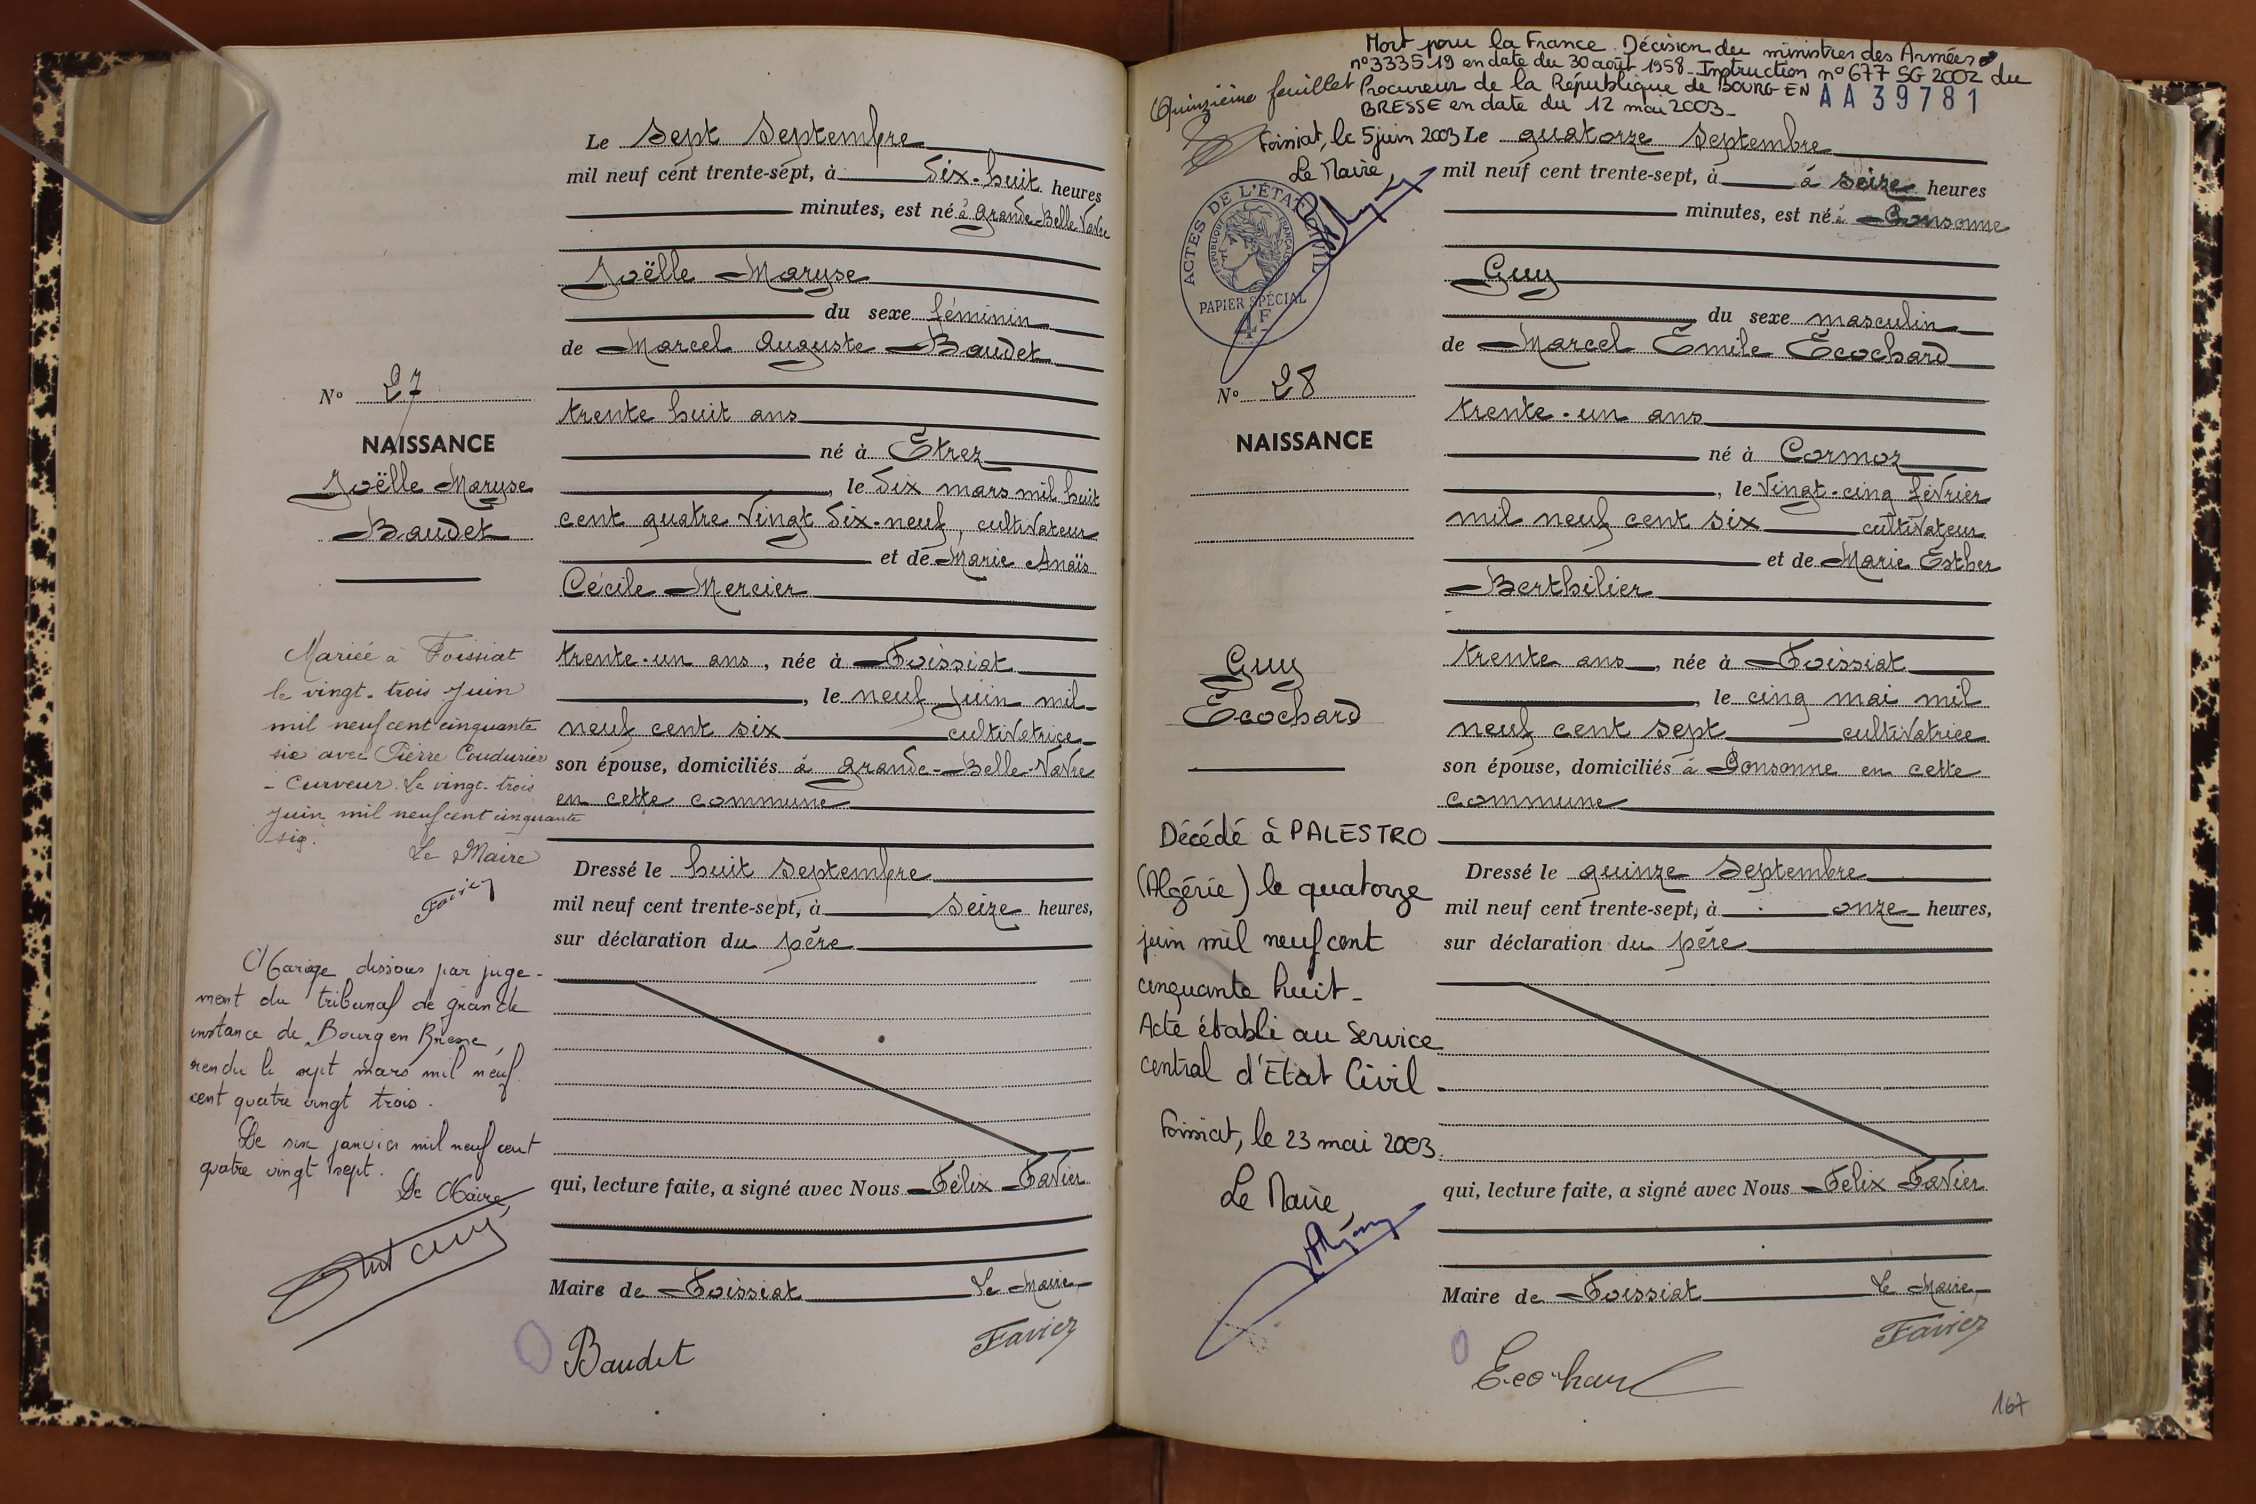 Le sept septembre
mil neuf cent trente-sept, à dix-huit heures
minutes, est né à Grande-Belle-Vavre
Joëlle Maryse
du sexe féminin
de Marcel Auguste Baudet
N° 27
trente huit ans
NAISSANCE
né à Etrez
Joëlle Maryse
Baudet
, le dix mars mil huit
cent quatre vingt dix-neuf, cultivateur
et de Marie Anaïs
Cécile Mercier
trente-un ans, née à Foissiat
, le neuf juin mil
neuf cent six cultivatrice
son épouse, domiciliés à Grande-Belle-Vavre
en cette commune
Mariée à Foissiat
le vingt-trois juin
mil neuf cent cinquante
six avec Pierre Coudurier
-Curveur. Le vingt-trois
juin mil neuf cent cinquante
six.
Le Maire
Favier
Dressé le huit septembre
mil neuf cent trente-sept, à seize heures,
sur déclaration du père
Mariage dissous par juge-
ment du tribunal de grande
instance de Bourg en Bresse
rendu le sept mars mil neuf
cent quatre vingt trois.
Le six janvier mil neuf cent
quatre vingt sept.
Le Maire
qui, lecture faite, a signé avec Nous Félix Favier
Maire de Foissiat Le Maire,
Baudet
Favier
Mort pour la France. Décision du ministres des Armées
n° 333519 en date du 30 août 1958. Instruction n° 677 SG 2002 du
Procureur de la République de BOURG EN
BRESSE en date du 12 mai 2003-
Quinzième feuillet
AA39781
Foissiat, le 5 juin 2003
Le Maire,
ACTES DE L'ÉTAT CIVIL
RÉPUBLIQUE FRANÇAISE
PAPIER SPÉCIAL
4F
Le quatorze septembre
mil neuf cent trente-sept, à à seize heures
minutes, est né à Gonsonne
Guy
du sexe masculin
de Marcel Emile Ecochard
N° 28
trente-un ans
NAISSANCE
né à Cormoz
, le vingt-cinq février
mil neuf cent six cultivateur
et de Marie Esther
Berthilier
Guy
Ecochard
trente ans, née à Foissiat
, le cinq mai mil
neuf cent sept cultivatrice
son épouse, domiciliés à Gonsonne en cette
commune
Décédé à PALESTRO
(Algérie) le quatorze
juin mil neuf cent
cinquante huit-
Acte établi au Service
central d'Etat Civil-
Foissiat, le 23 mai 2003.
Le Maire,
Dressé le quinze septembre
mil neuf cent trente-sept, à onze heures,
sur déclaration du père
qui, lecture faite, a signé avec Nous Félix Favier
Maire de Foissiat Le Maire,
Favier
Ecochard
167